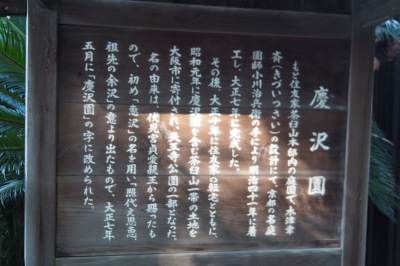 慶沢園
もと住友家茶臼山本邸内の庭園で、木津聿
斉(きづいつさい)の設計にて、京都の名庭
園師小川治兵衛の手により明治四十一年に着
工し、大正七年に完成した。
その後、大正十年に住友家の転宅とともに、
昭和元年に慶沢園を含む茶臼山一帯の土地を
大阪市に寄付され、天王寺公園の一部となった。
名の由来は、伏見宮貞愛親王から賜ったも
ので、初め「恵沢」の名を用い、「照代之恩恵、
祖先の余沢」の意より出たもので、大正七年
五月に「慶沢園」の字に改められた。